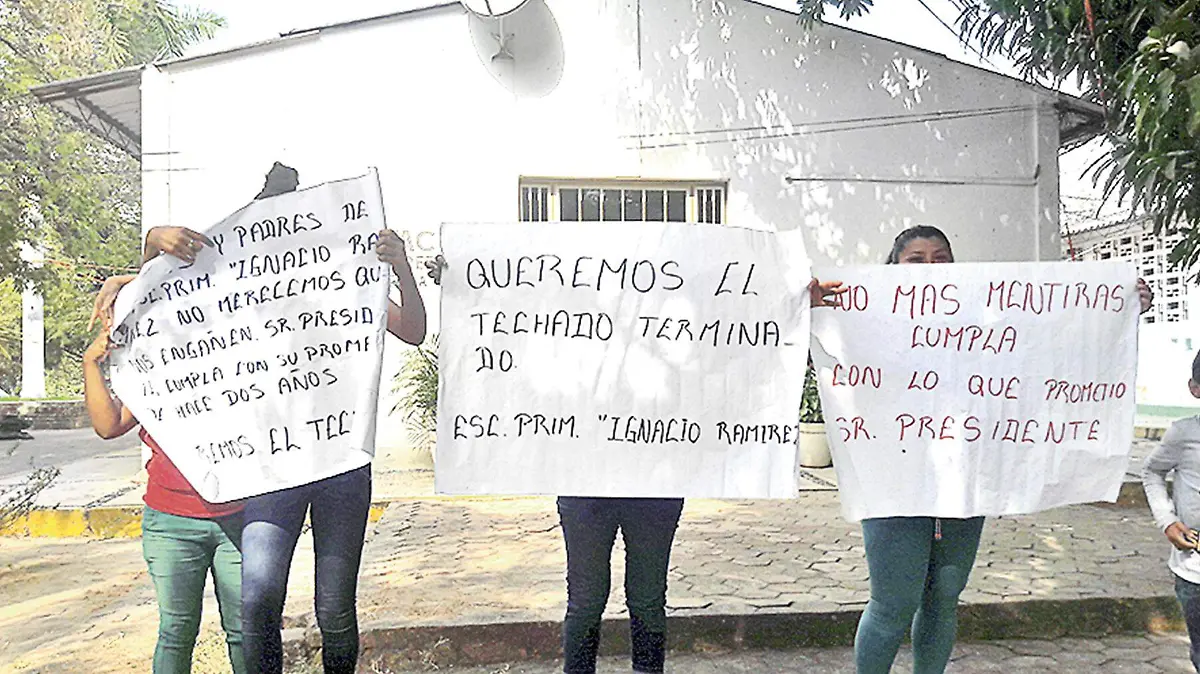 Y PADRES DE
ESC. PRIM. "IGNACIO RA
NO MERECEMOS QU
NOS ENGAÑEN. SR. PRESID
CUMPLA CON SU PROME
HACE DOS AÑOS
REMOS EL TEC
QUEREMOS EL
TECHADO TERMINA-
DO.
ESC. PRIM. "IGNACIO RAMIREZ
NO MAS MENTIRAS
CUMPLA
CON LO QUE PROMETIO
SR. PRESIDENTE